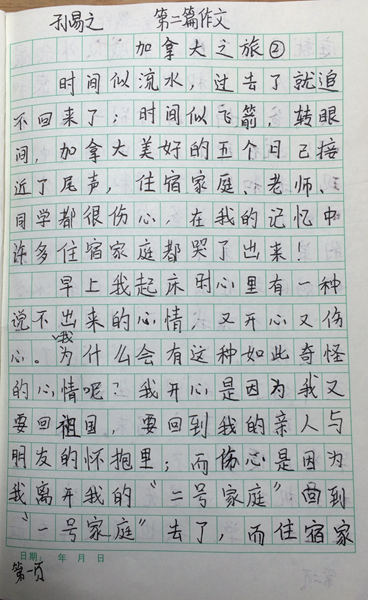 孙易之 第二篇作文
加拿大之旅②
时间似流水，过去了就追
不回来了；时间似飞箭，转眼
间，加拿大美好的五个日已接
近了尾声，住宿家庭、老师、
同学都很伤心，在我的记忆中
许多住宿家庭都哭了出来！
早上我起床时心里有一种
说不出来的心情，又开心又伤
心。我为什么会有这种如此奇怪
的心情呢？我开心是因为我又
要回祖国，要回到我的亲人与
朋友的怀抱里；而伤心是因为
我离开我的“二号家庭”回到
“一号家庭”去了，而住宿家
日期： 年 月 日
第一页